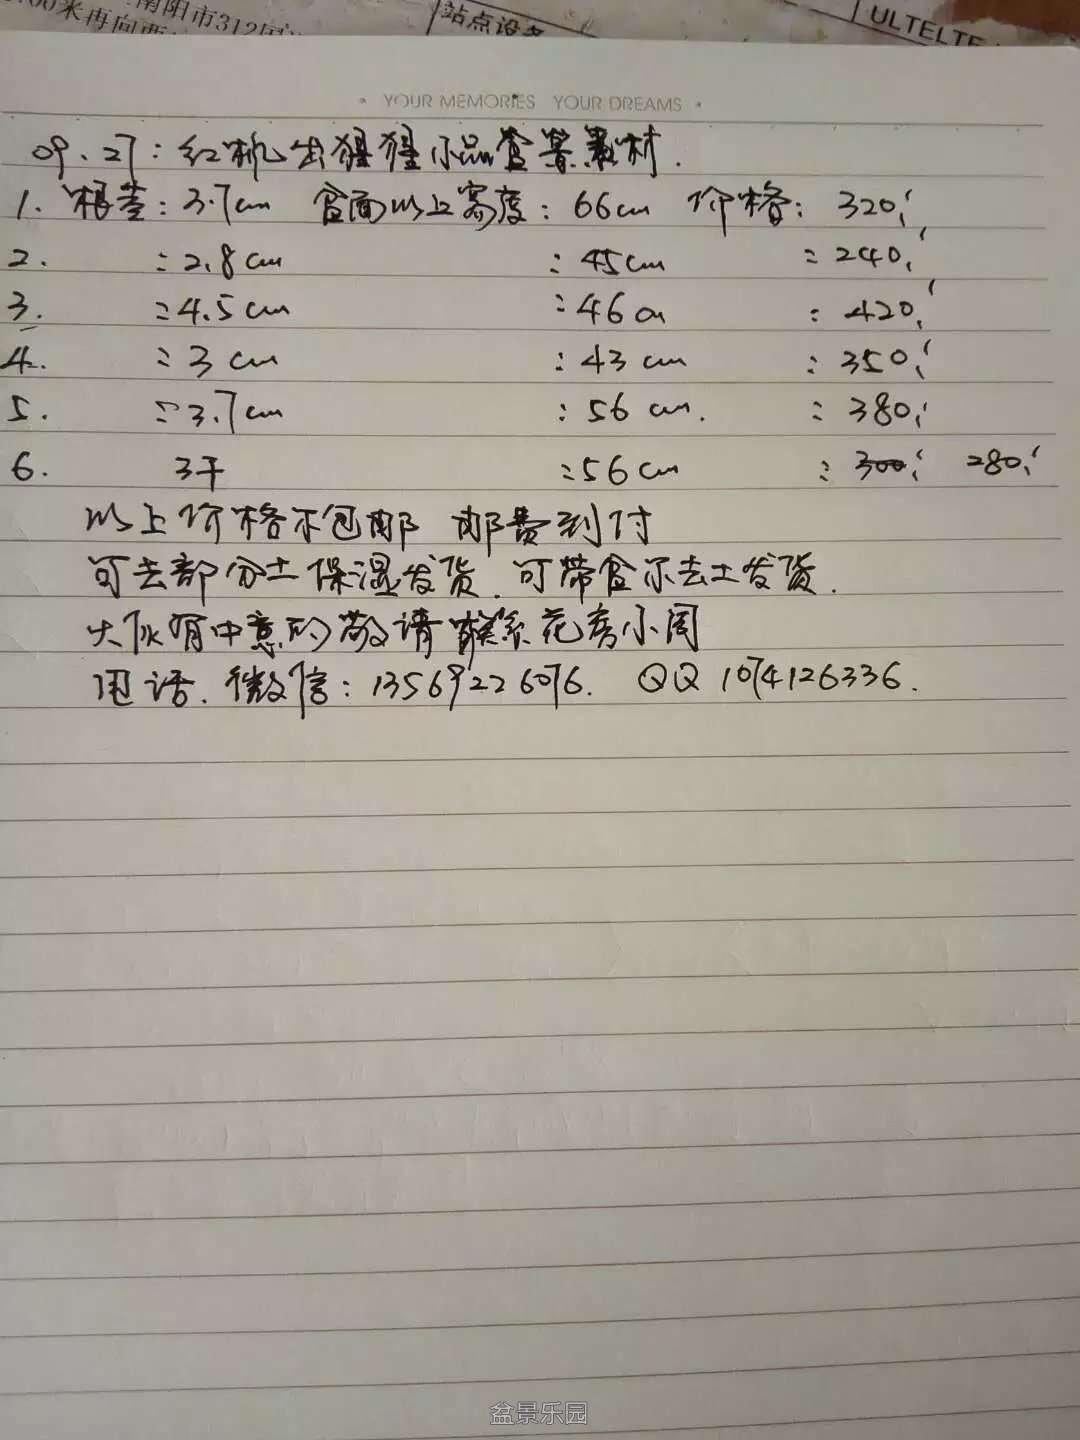 南阳市312国
00米再向西
站点设备
ULTELTE
YOUR MEMORIES YOUR DREAMS
09.27:红机出猩猩小品盆景素材.
1. 根茎:3.7cm 盆面以上高度:66cm 价格:320,
2. :2.8cm :45cm :240,
3. :4.5cm :46cm :420,
4. :3cm :43cm :350,
5. :3.7cm :56cm. :380,
6. 3干 :56cm :300, 280,
以上价格不包邮 邮费到付
可去部分土保湿发货.可带盆不去土发货.
大伙有中意的敬请联系花房小阁
电话.微信:13569226076. QQ 1074126336.
盆景乐园